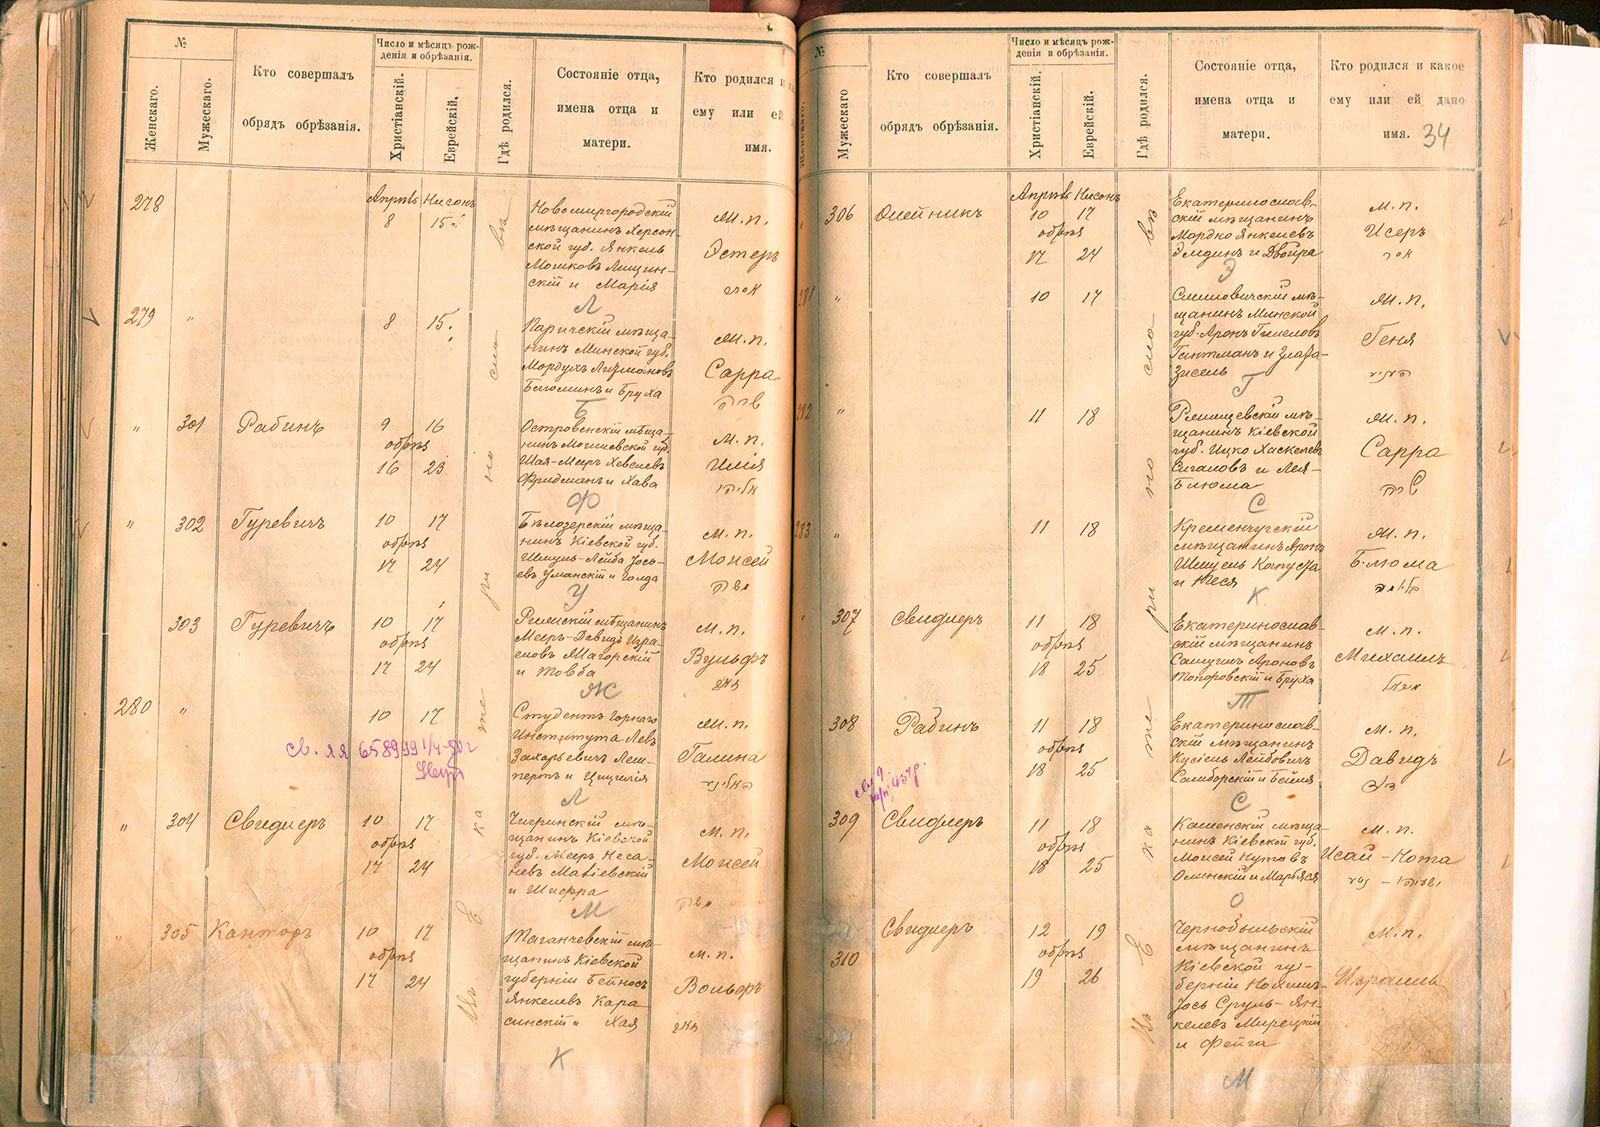 №
Женскаго.
Мужескаго.
Кто совершалъ
обрядъ обрѣзанія.
Число и мѣсяцъ рож-
денія и обрѣзанія.
Христіанскій.
Еврейскій.
Гдѣ родился.
Состояніе отца,
имена отца и
матери.
Кто родился и
ему или ей
имя.
Въ Екатеринославѣ
278
Апрѣль Нисонъ
8 15
Новомиргородскій
мѣщанинъ Херсон-
ской губ. Янкель
Мошковъ Лищин-
скій и Марія
Л
М. п.
Эстеръ
279 "
8 15
Паричскій мѣща-
нинъ Минской губ.
Мордухъ
и Бруха
Б
М. п.
Сарра
שרה
" 301 Рабинъ
9 16
обрѣз
16 23
Островскій мѣща-
нинъ Могилевской губ.
Шая-Меръ Хевелевъ
Фридманъ и Хава
Ф
М. п.
Илія
אליהו
" 302 Гуревичъ
10 17
обрѣз
17 24
Бѣлозерскій мѣща-
нинъ Кіевской губ.
Шмуль-Лейба Іось-
евъ Уманскій и Голда
У
М. п.
Моисей
משה
303 Гуревичъ
10 17
обрѣз
17 24
мѣщанинъ
Меръ-Давидъ Изра-
елевъ Магорскій
и Товба
Ж
М. п.
Вульфъ
זאב
280 "
10 17
св. ЯЯ 658999 1/4-50 г
Студентъ Горнаго
Института Левъ
Захарьевичъ Леш-
перъ и Цицилія
Л
М. п.
Галина
" 304 Свидлеръ
10 17
обрѣз
17 24
Чигринскій мѣ-
щанинъ Кіевской
губ. Меръ Неса-
невъ Матіевскій
и Шифра
М
М. п.
Моисей
משה
" 305 Канторъ
10 17
обрѣз
17 24
Таганчевскій мѣ-
щанинъ Кіевской
губерніи Бейнос
Янкелевъ Кара-
синскій и Хая
К
М. п.
Вольфъ
זאב
№
Женскаго.
Мужескаго
Кто совершалъ
обрядъ обрѣзанія.
Число и мѣсяцъ рож-
денія и обрѣзанія.
Христіанскій.
Еврейскій.
Гдѣ родился.
Состояніе отца,
имена отца и
матери.
Кто родился и какое
ему или ей дано
имя. 34
Въ Екатеринославѣ
306 Олейникъ
Апрѣль Нисонъ
10 17
обрѣз
17 24
Екатеринослав-
скій мѣщанинъ
Мордко Янкелевъ
Элдинъ и Двойра
Э
М. п.
Исеръ
281 "
10 17
Смиловичскій мѣ-
щанинъ Минской
губ. Аронъ Гимелевъ
Гантманъ и Злата-
Зисель
Г
М. п.
Геня
282 "
11 18
мѣ-
щанинъ Кіевской
губ. Ицко Хаскелевъ
Сигаловъ и Лея-
Блюма
С
М. п.
Сарра
שרה
283 "
11 18
Кременчугскій
мѣщанинъ Аронъ
Шмуель Капуста
и Песя
К
М. п.
Блюма
בלומה
307 Свидлеръ
11 18
обрѣз
18 25
Екатеринослав-
скій мѣщанинъ
Самуилъ Ароновъ
Топоровскій и Бруха
Т
М. п.
Михаилъ
308 Рабинъ
11 18
обрѣз
18 25
Екатеринослав-
скій мѣщанинъ
Кусіель Лейбовичъ
Самборскій и Бейля
С
М. п.
Давидъ
דוד
309 Свидлеръ
11 18
обрѣз
18 25
Каменскій мѣща-
нинъ Кіевской губ.
Моисей Нутовъ
Олинскій и Марьяся
О
М. п.
Исай-Нота
310
Свидлеръ
12 19
обрѣз
19 26
Чернобыльскій
мѣщанинъ
Кіевской гу-
берніи
Іось Сруль-Ян-
келевъ Мирецкій
и Фейга
М
М. п.
Израиль